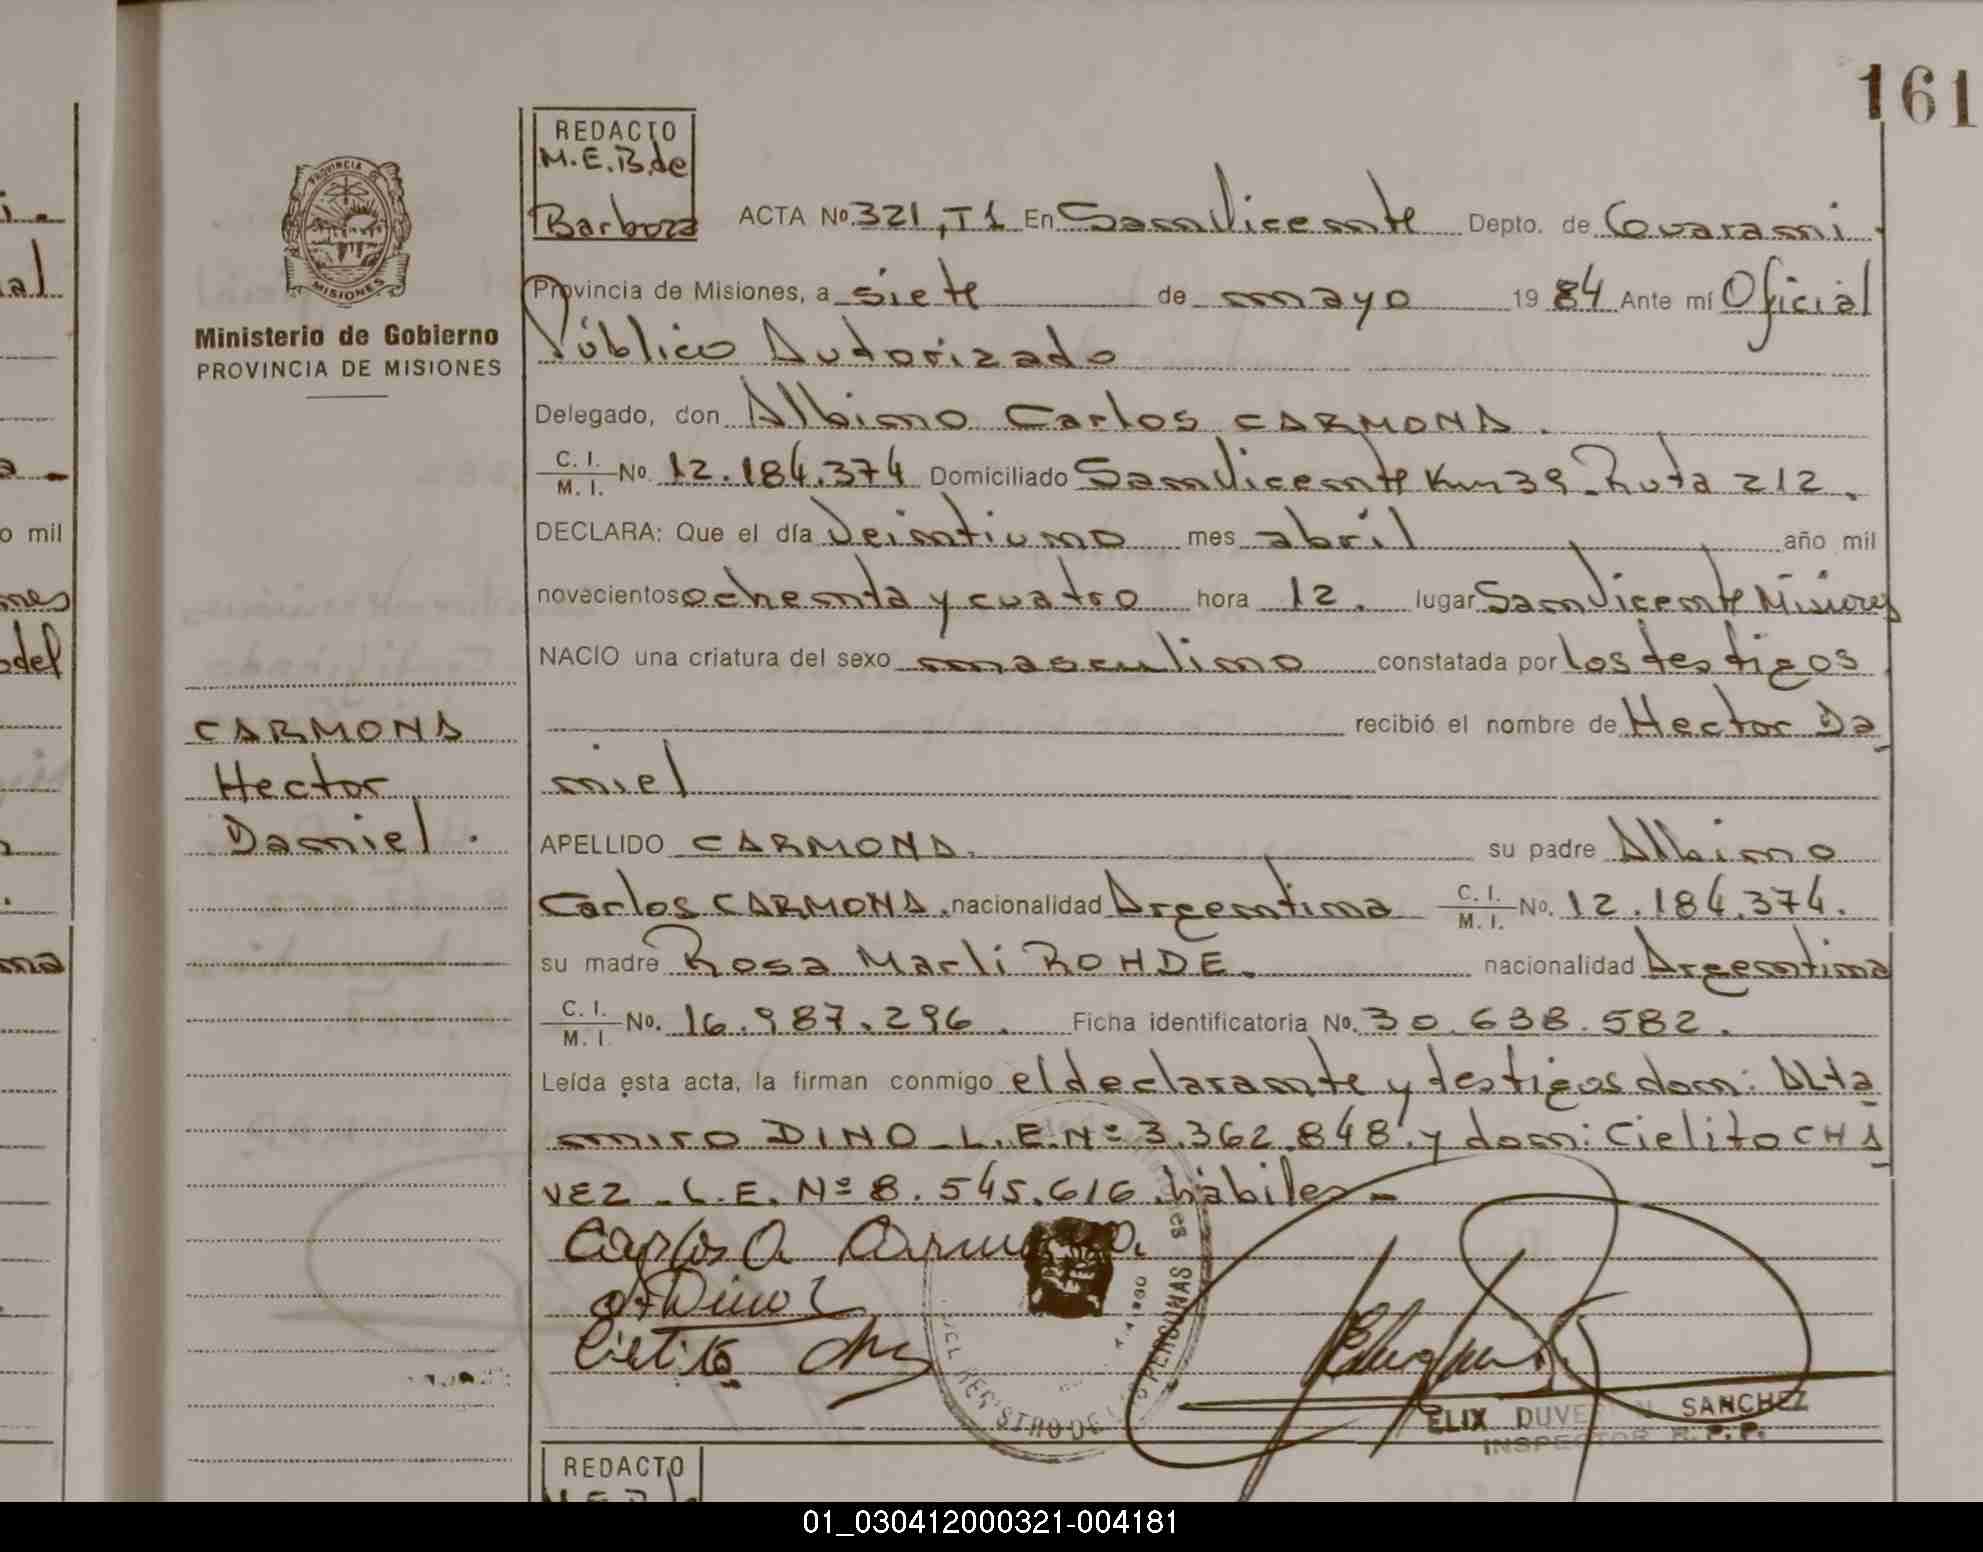 161
REDACTO
M.E.B.de
Barboza
PROVINCIA DE
MISIONES
Ministerio de Gobierno
PROVINCIA DE MISIONES
ACTA No. 321, T1 En San Vicente Depto. de Guarani.
Provincia de Misiones, a siete de mayo 1984 Ante mí Oficial
Público Autorizado
Delegado, don Albino Carlos CARMONA.
C. I. / M. I. No. 12.184.374 Domiciliado San Vicente Km 39 Ruta 212.
DECLARA: Que el día veintiuno mes abril año mil
novecientos ochenta y cuatro hora 12. lugar San Vicente Misiones
NACIO una criatura del sexo masculino constatada por los testigos
recibió el nombre de Hector Da
niel
CARMONA
Hector
Daniel.
APELLIDO CARMONA. su padre Albino
Carlos CARMONA. nacionalidad Argentina C. I. / M. I. No. 12.184.374.
su madre Rosa Marli ROHDE. nacionalidad Argentina
C. I. / M. I. No. 16.987.296. Ficha identificatoria No. 30.638.582.
Leída esta acta, la firman conmigo el declarante y testigos don: Alta
miro DINO L.E.Nº 3.362.848 y don: Cielito CHA
VEZ - L.E. Nº 8.545.616 hábiles -
SANCHEZ
INSPECTOR R.P.P.
REDACTO
al
a -
o mil
nes
del
na
01_030412000321-004181